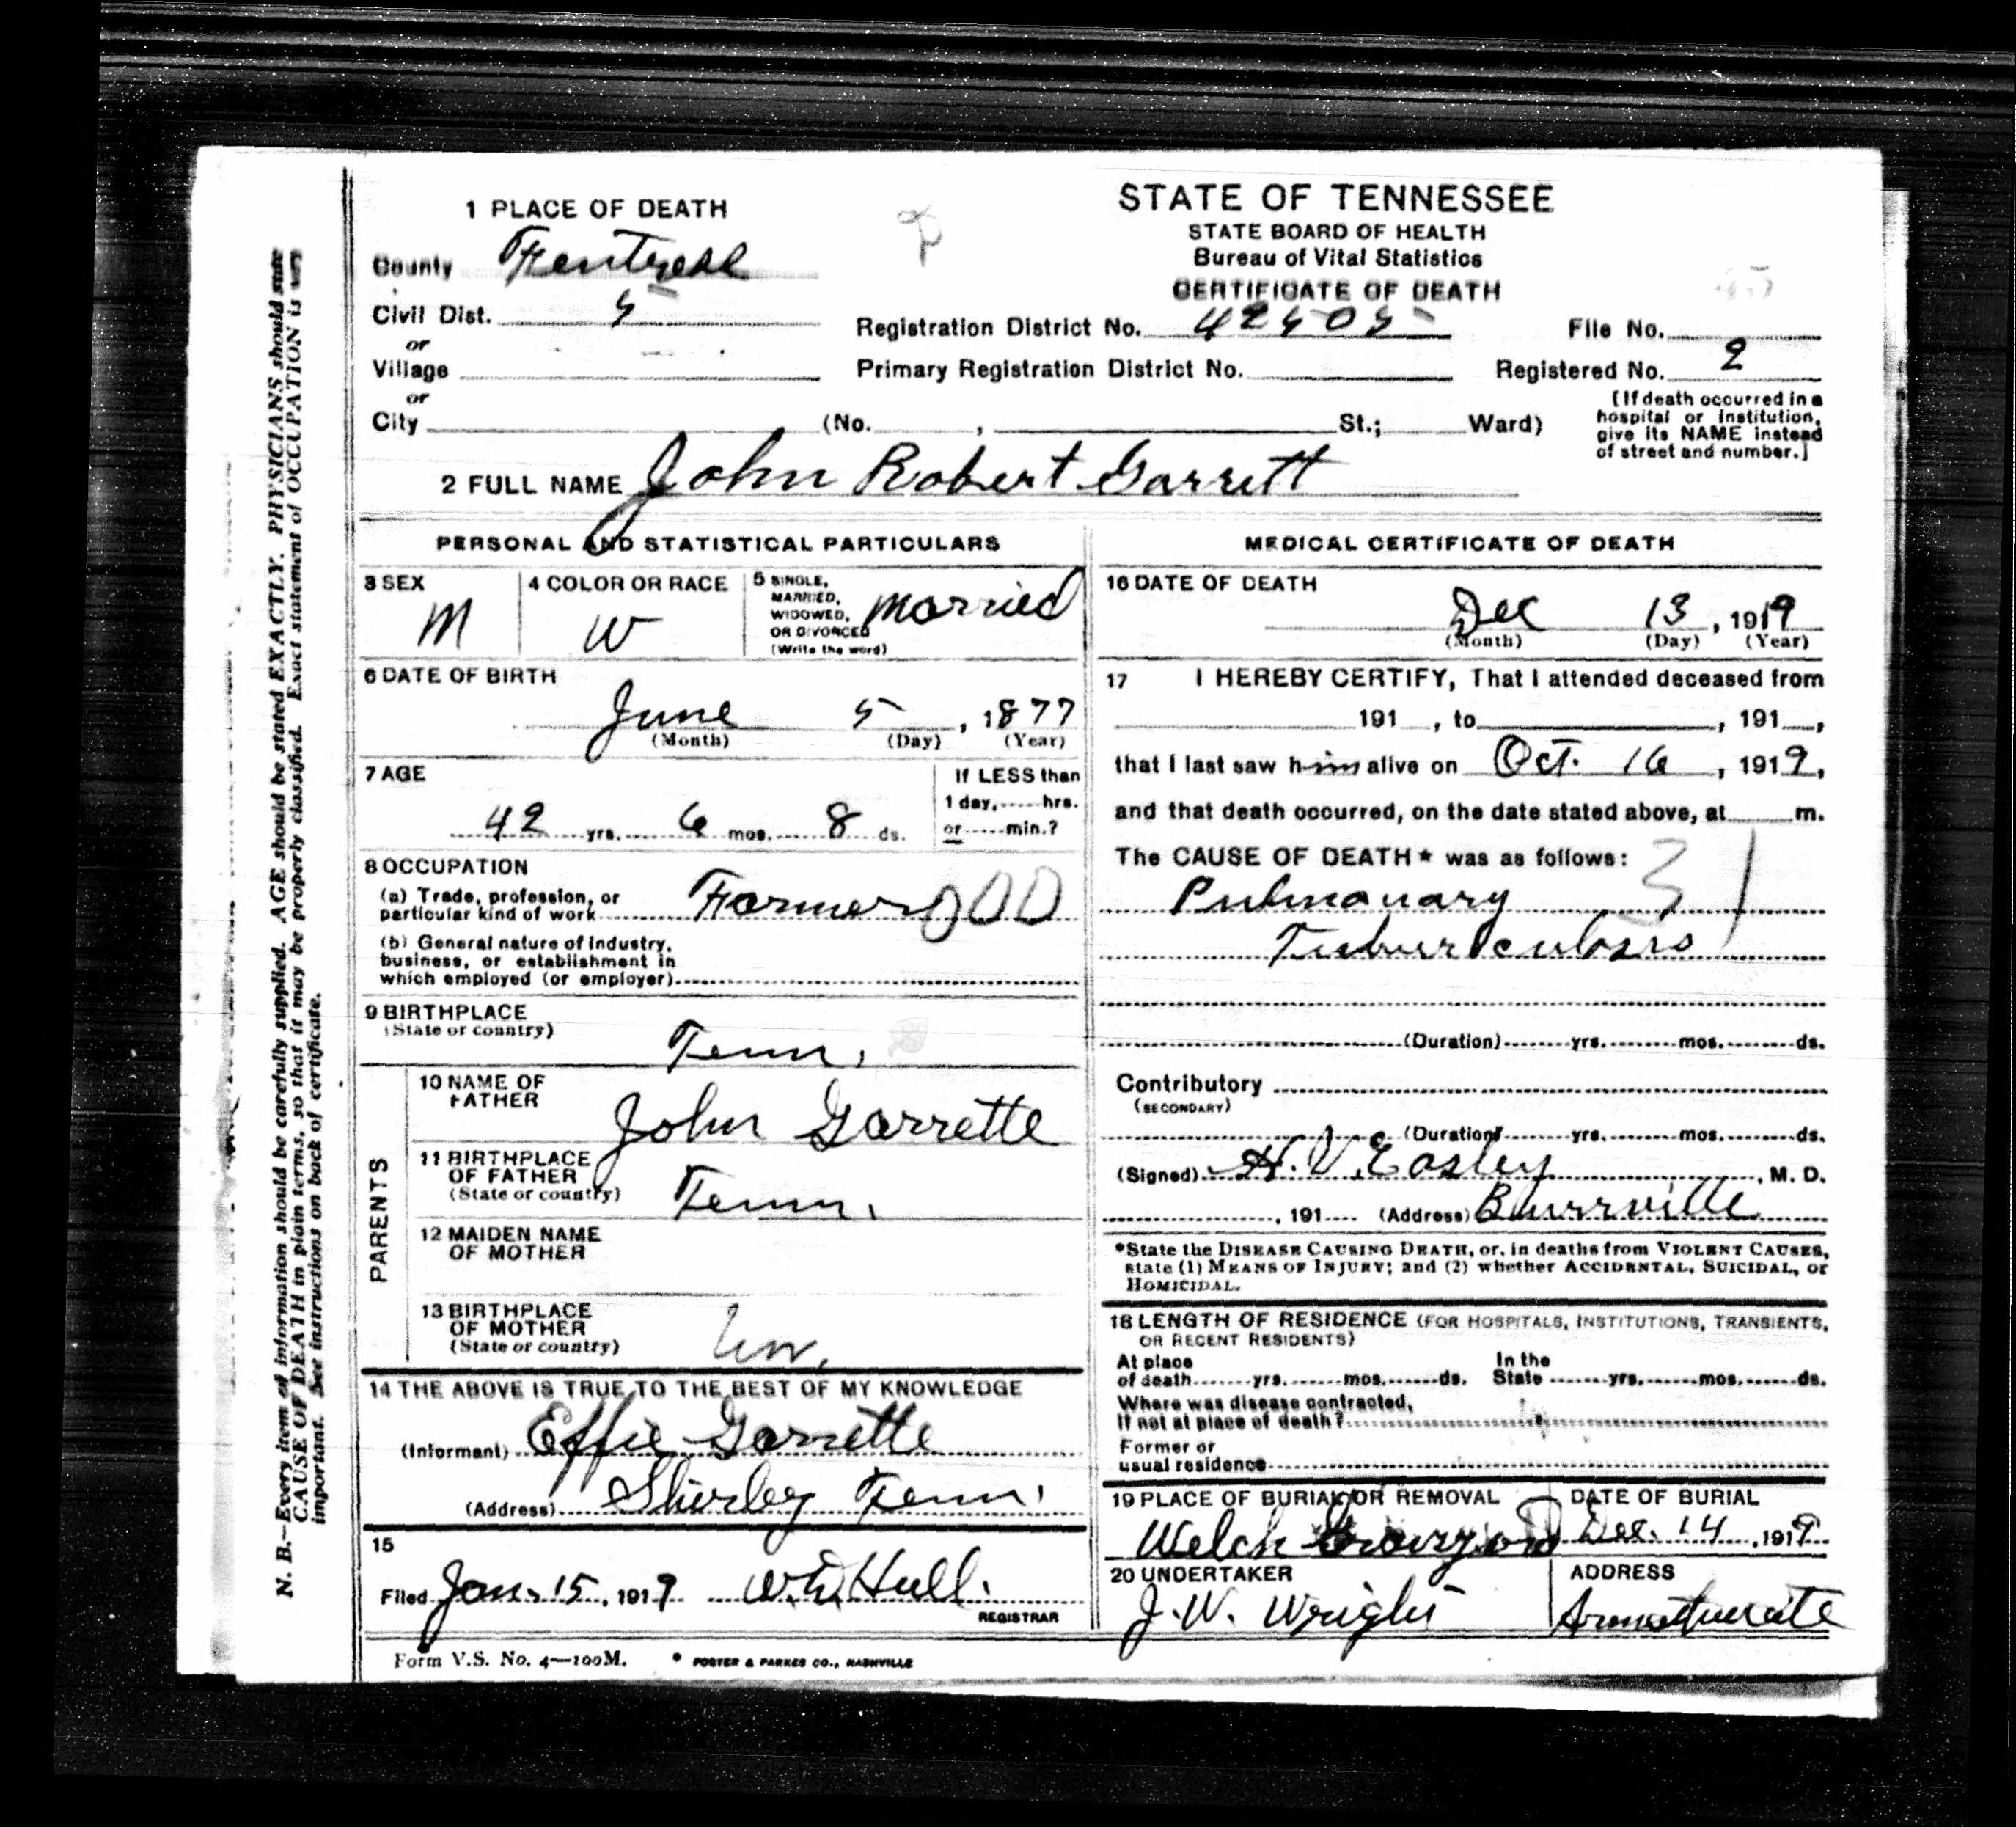 1 PLACE OF DEATH
County Fentress
Civil Dist. 5
or
Village
or
City (No. , St.; Ward)
STATE OF TENNESSEE
STATE BOARD OF HEALTH
Bureau of Vital Statistics
CERTIFICATE OF DEATH
Registration District No. 42505 File No.
Primary Registration District No. Registered No. 2
[If death occurred in a
hospital or institution,
give its NAME instead
of street and number.]
2 FULL NAME John Robert Garrett
PERSONAL AND STATISTICAL PARTICULARS
3 SEX
M
4 COLOR OR RACE
W
5 SINGLE,
MARRIED,
WIDOWED,
OR DIVORCED
(Write the word)
married
6 DATE OF BIRTH
June 5, 1877
(Month) (Day) (Year)
7 AGE
42 yrs. 6 mos. 8 ds.
If LESS than
1 day, hrs.
or min.?
8 OCCUPATION
(a) Trade, profession, or
particular kind of work Farmer 000
(b) General nature of industry,
business, or establishment in
which employed (or employer)
9 BIRTHPLACE
(State or country)
Tenn.
PARENTS
10 NAME OF
FATHER
John Garrette
11 BIRTHPLACE
OF FATHER
(State or country)
Tenn.
12 MAIDEN NAME
OF MOTHER
13 BIRTHPLACE
OF MOTHER
(State or country)
14 THE ABOVE IS TRUE TO THE BEST OF MY KNOWLEDGE
(Informant) Effie Garrette
(Address) Shirley Tenn.
15
Filed Jan. 15, 1919 Hull.
REGISTRAR
Form V.S. No. 4—100M. * FOSTER & PARKES CO., NASHVILLE
MEDICAL CERTIFICATE OF DEATH
16 DATE OF DEATH
Dec 13, 1919
(Month) (Day) (Year)
17 I HEREBY CERTIFY, That I attended deceased from
191 , to , 191 ,
that I last saw him alive on Oct. 16, 1919,
and that death occurred, on the date stated above, at m.
The CAUSE OF DEATH* was as follows: 31
Pulmanary
Tuburculosis
(Duration) yrs. mos. ds.
Contributory
(SECONDARY)
(Duration) yrs. mos. ds.
(Signed) H. V. Easley, M. D.
, 191 (Address) Burrville
*State the DISEASE CAUSING DEATH, or, in deaths from VIOLENT CAUSES,
state (1) MEANS OF INJURY; and (2) whether ACCIDENTAL, SUICIDAL, or
HOMICIDAL.
18 LENGTH OF RESIDENCE (FOR HOSPITALS, INSTITUTIONS, TRANSIENTS,
OR RECENT RESIDENTS)
At place
of death yrs. mos. ds.
In the
State yrs. mos. ds.
Where was disease contracted,
If not at place of death?
Former or
usual residence
19 PLACE OF BURIAL OR REMOVAL
Welch Graveyard
DATE OF BURIAL
Dec. 14, 1919
20 UNDERTAKER
J. W. Wright
ADDRESS
N. B.—Every item of information should be carefully supplied. AGE should be stated EXACTLY. PHYSICIANS should state
CAUSE OF DEATH in plain terms, so that it may be properly classified. Exact statement of OCCUPATION is very
important. See instructions on back of certificate.